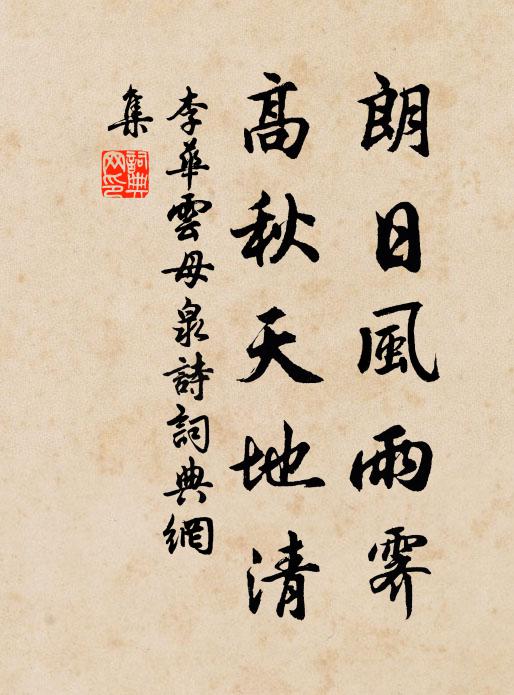 朗日風雨霽
高秋天地清
李華雲母泉詩詞典網
集
詞典網印